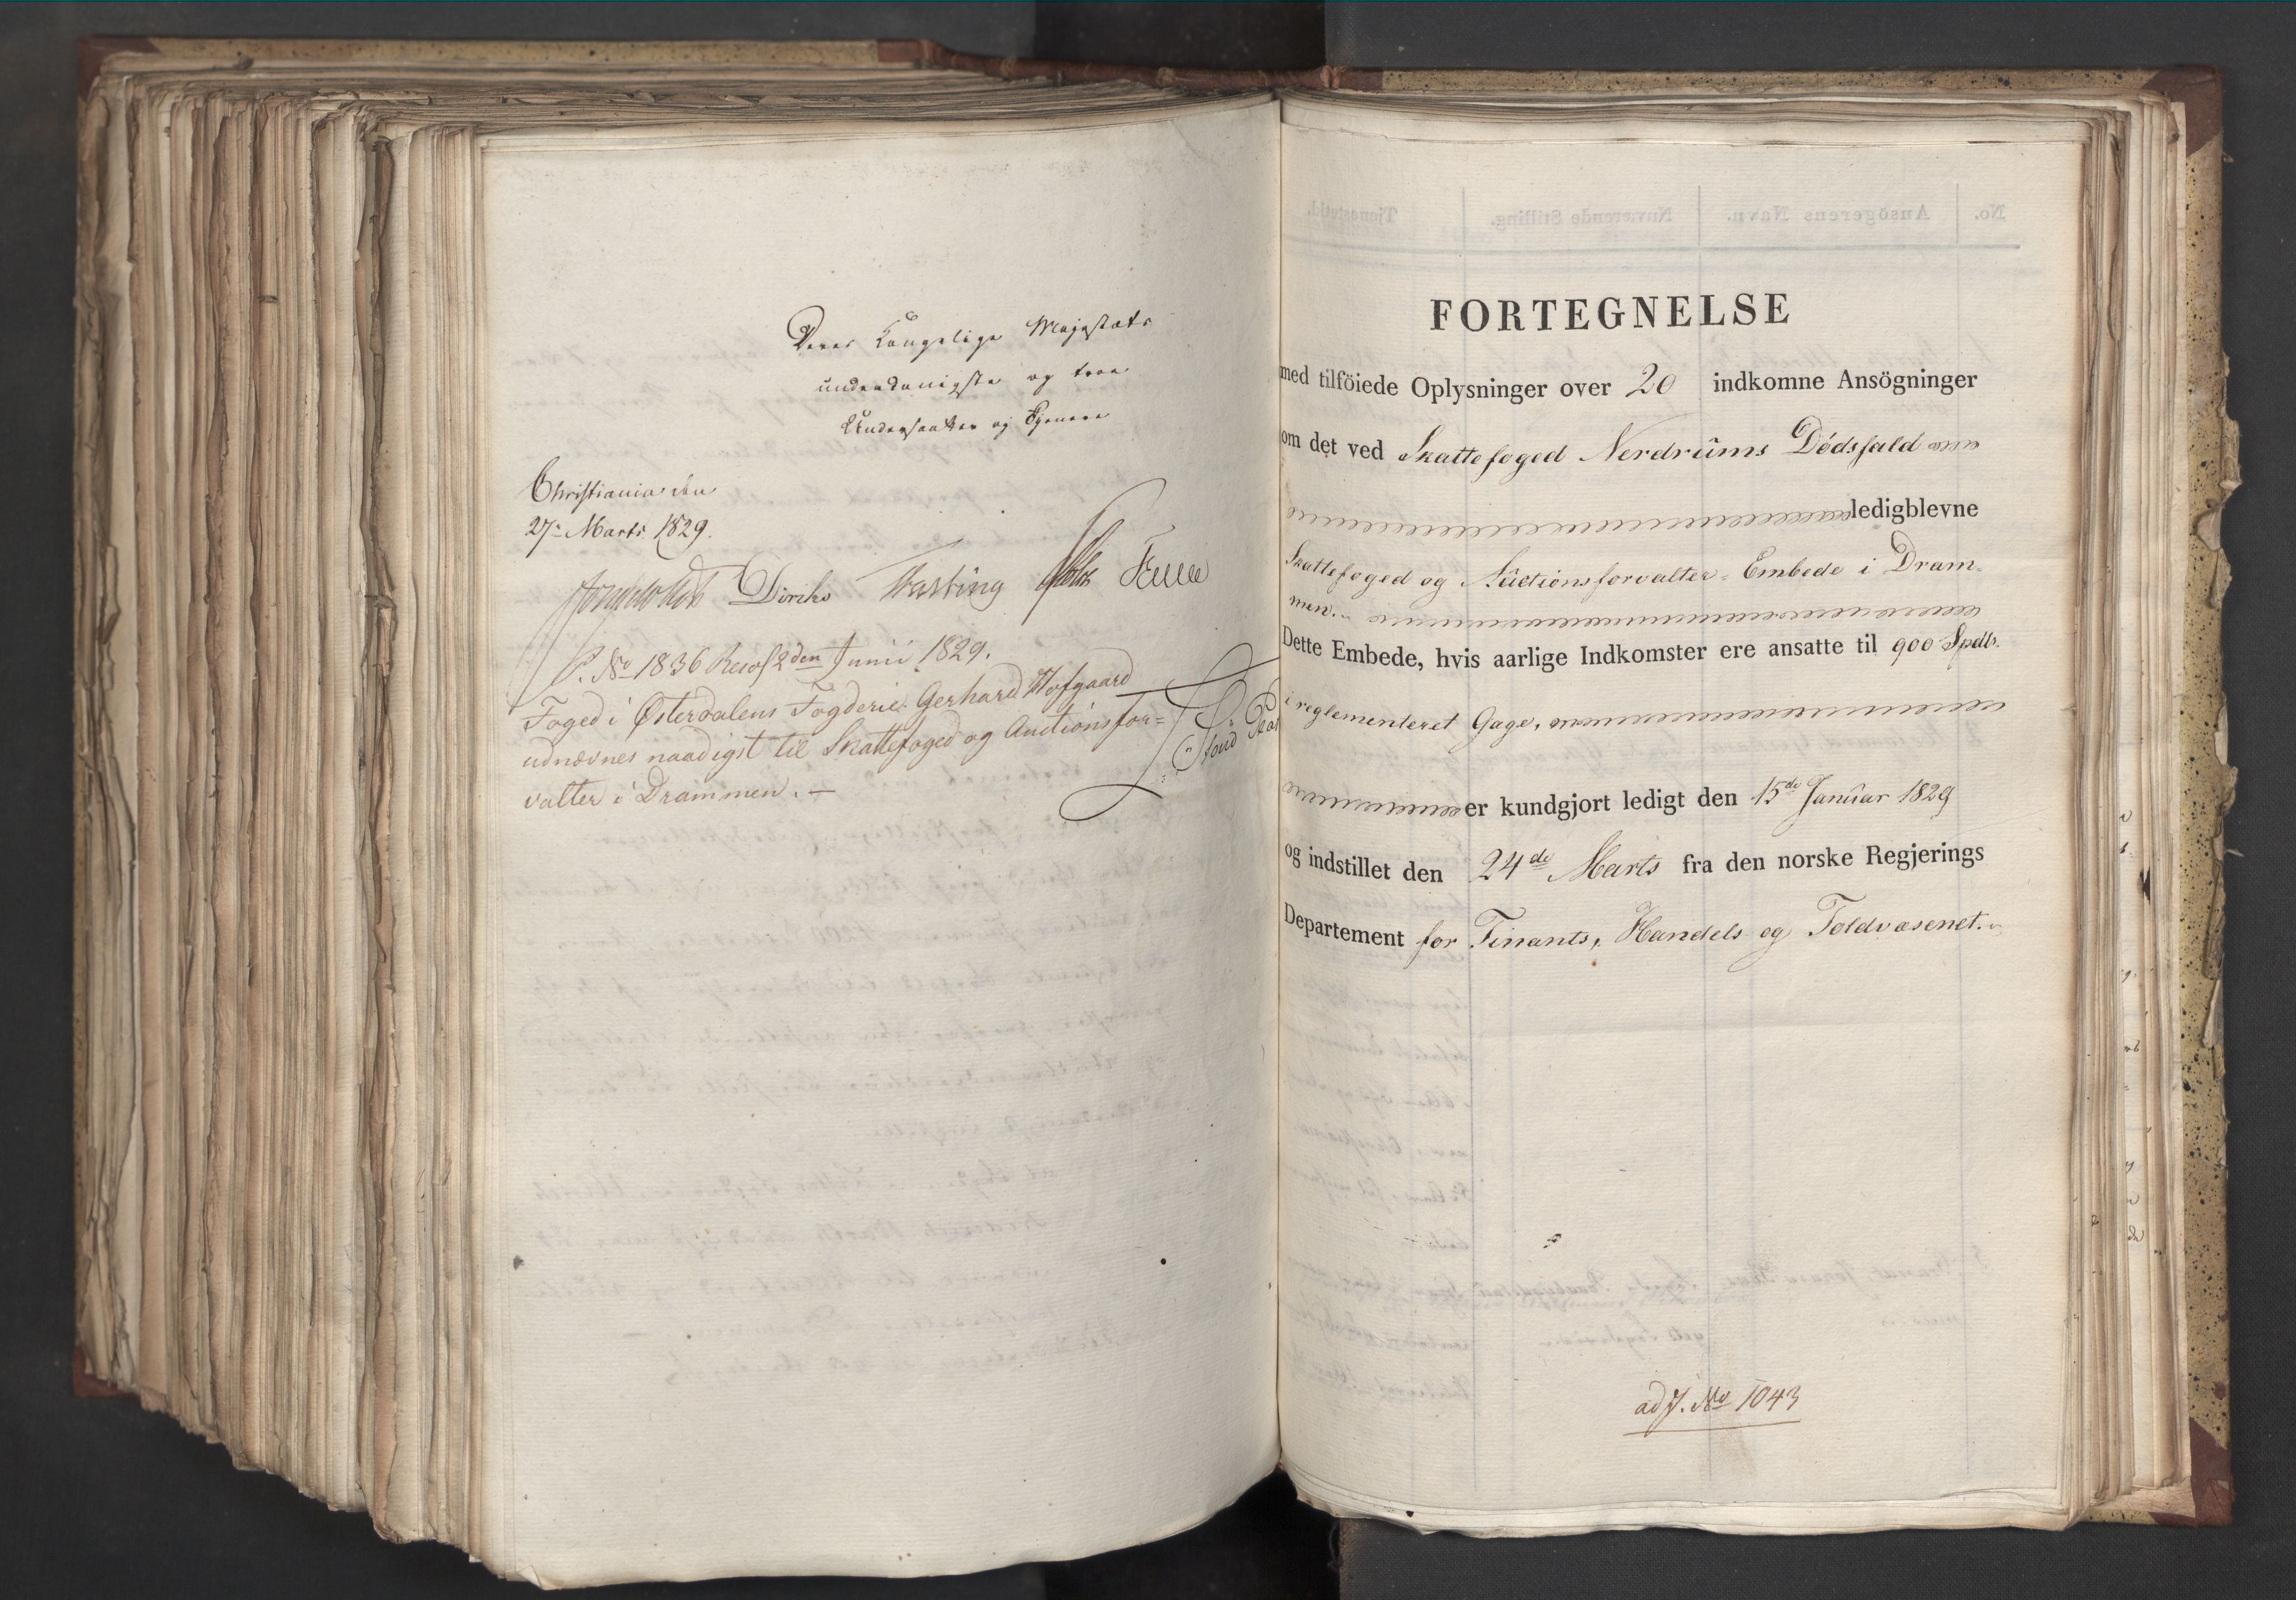 Deres Kongelige Majestæts
underdanigste og troe
Undersaatter og Tjenere
Christiania den
27de Marts 1829.
Diriks Fasting Holst
P. No 1836 Resol. 2den Junii 1829.
Foged i Østerdalens Fogderie Gerhard Hofgaard
udnævnes naadigst til Skattefoged og Auctionsfor=
valter i Drammen. —
FORTEGNELSE
med tilföiede Oplysninger over 20 indkomne Ansögninger
om det ved Skattefoged Nerdrûms Dødsfald
ledigblevne
Skattefoged og Aûctionsforvalter-Embede i Dram-
men.
Dette Embede, hvis aarlige Indkomster ere ansatte til 900 Spdlr.
i reglementeret Gage,
er kundgjort ledigt den 15de Janûar 1829
og indstillet den 24de Marts fra den norske Regjerings
Departement for Finants, Handels og Toldvæsenet.
ad J. No 1043